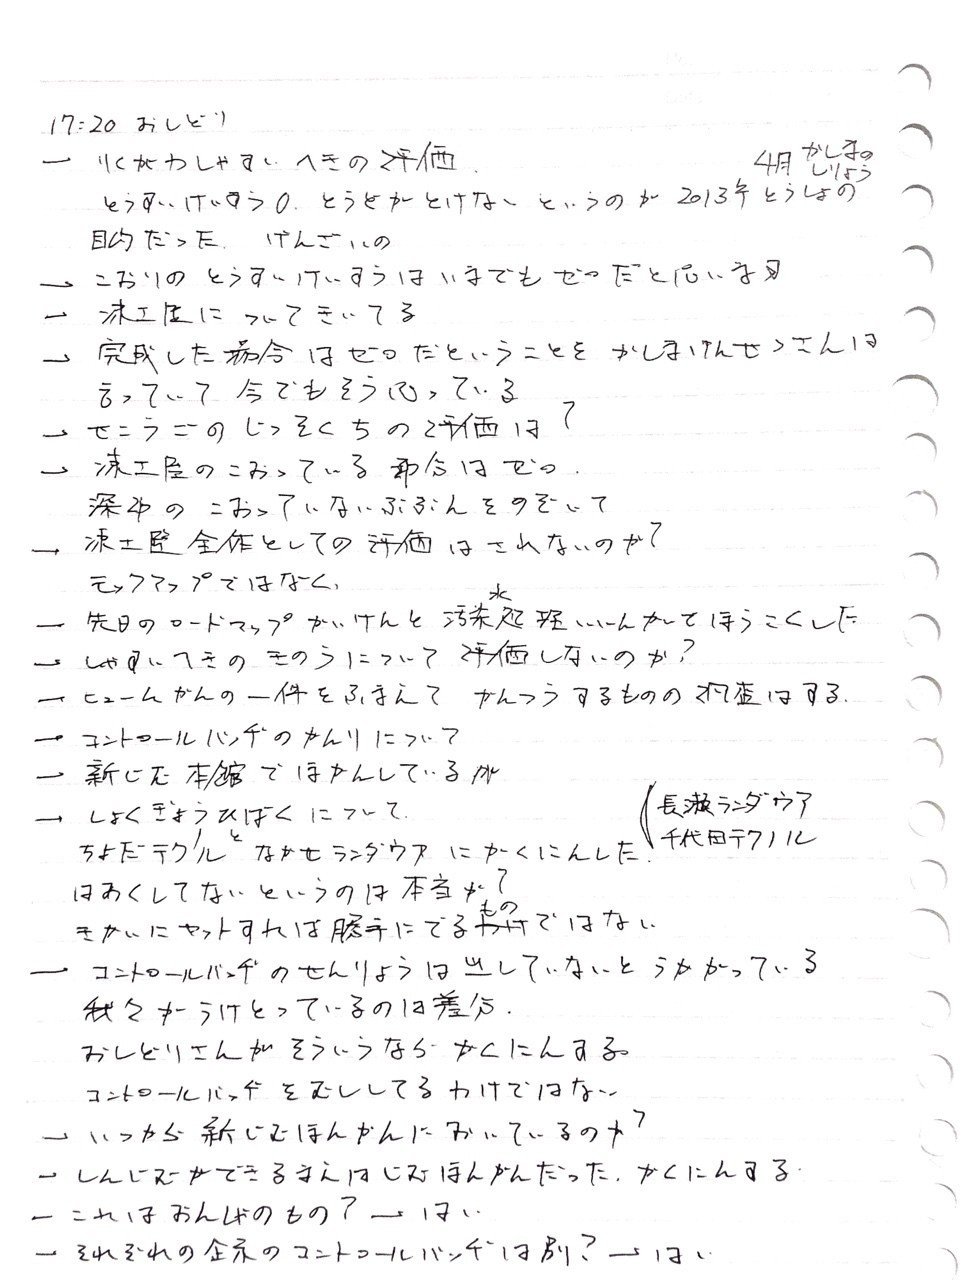 17:20 おしどり
→ りくがわしゃすいへきの評価.
4月 かしまの
しりょう
とうすいけいすう0. とうどがとけない というのが 2013年とうしょの
目的だった. げんざいの
→ こおりの とうすいけいすうは いまでも ゼロだと思います
→ 凍土壁に ついてきいてる
→ 完成した場合はゼロだということを かしまけんせつさんは
言っていて 今でもそう思っている
→ せこうごの じっそくちの 評価は?
→ 凍土壁のこおっている部分はゼロ.
深部の こおっていないぶぶんをのぞいて
→ 凍土壁全体としての 評価は されないのか?
モックアップではなく、
→ 先日のロードマップかいけんと 汚染水処理いいんかいでほうこくした
→ しゃすいへきの きのうについて 評価しないのか?
→ ヒュームかんの一件をふまえて かんつうするものの 調査はする.
→ コントロールバッヂのかんりについて
→ 新じむ本館でほかんしているが
→ しょくぎょうひばくについて.
ちよだテクノルと ながせランダウアに かくにんした.
長瀬ランダウア
千代田テクノル
はあくしてないというのは本当か?
きかいにセットすれば勝手にでるものではない
→ コントロールバッヂのせんりょうは出していないと うかがっている
我々がうけとっているのは差分.
おしどりさんが そういうなら かくにんする。
コントロールバッヂをむししてるわけではない
→ いつから 新じむほんかんに おいているのか?
→ しんじむができるまえはじむほんかんだった. かくにんする.
→ これは おんどのもの? → はい
→ それぞれの企業のコントロールバッヂは別? → はい